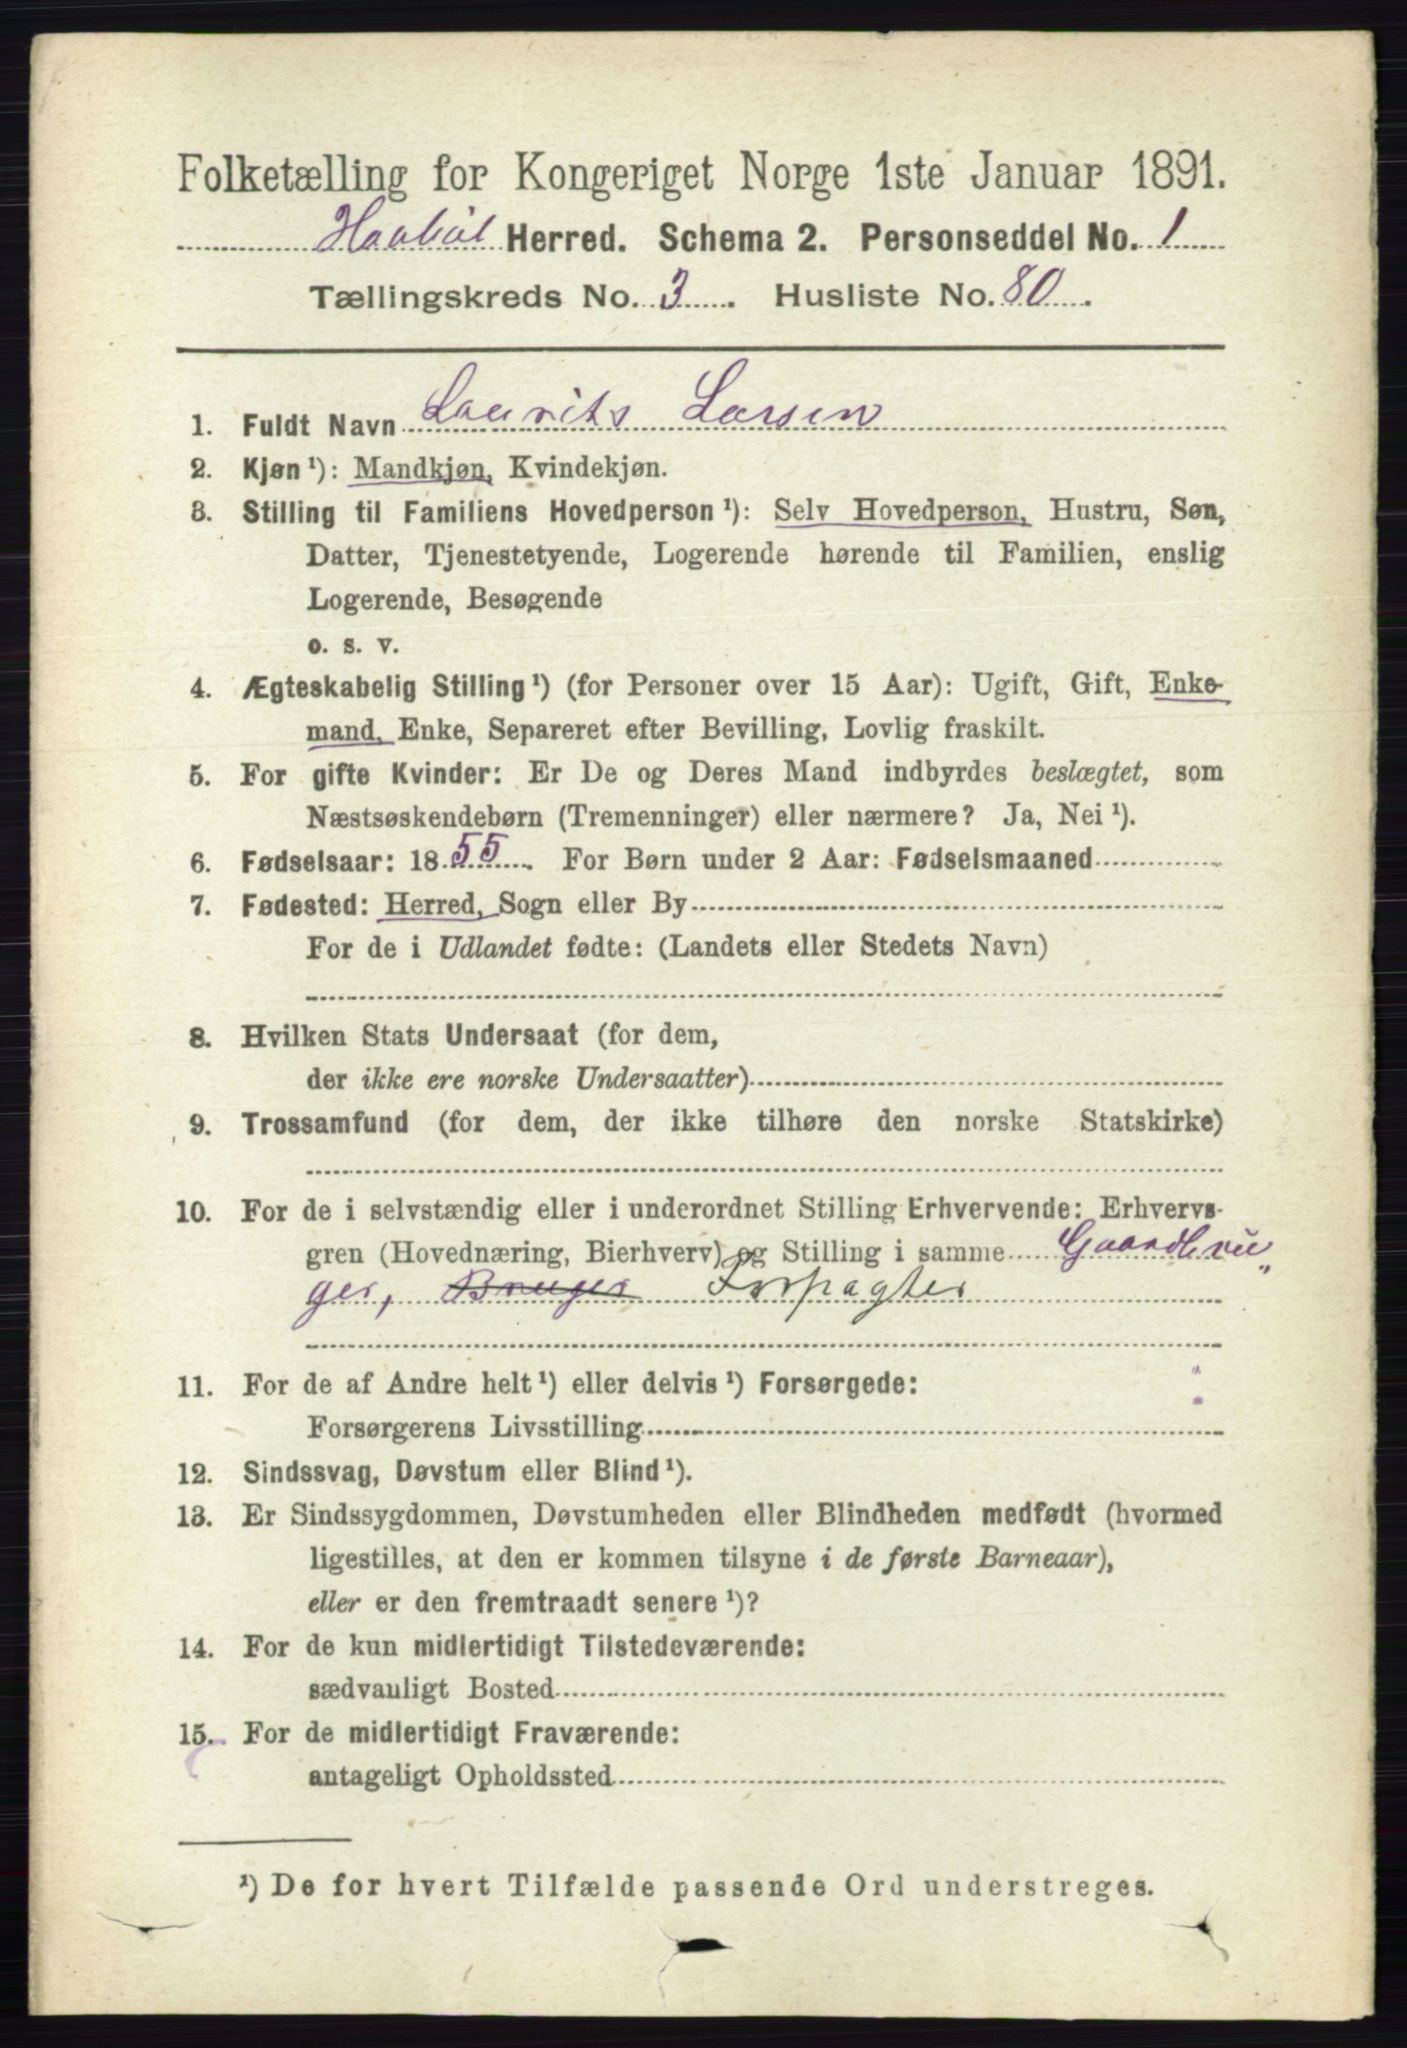 Folketælling for Kongeriget Norge 1ste Januar 1891.
Haabøl Herred. Schema 2. Personseddel No. 1
Tællingskreds No. 3. Husliste No. 80.
1. Fuldt Navn Laurits Larsen
2. Kjøn ¹): Mandkjøn, Kvindekjøn.
3. Stilling til Familiens Hovedperson ¹): Selv Hovedperson, Hustru, Søn,
Datter, Tjenestetyende, Logerende hørende til Familien, enslig
Logerende, Besøgende
o. s. v.
4. Ægteskabelig Stilling ¹) (for Personer over 15 Aar): Ugift, Gift, Enke-
mand, Enke, Separeret efter Bevilling, Lovlig fraskilt.
5. For gifte Kvinder: Er De og Deres Mand indbyrdes beslægtet, som
Næstsøskendebørn (Tremenninger) eller nærmere? Ja, Nei ¹).
6. Fødselsaar: 1855. For Børn under 2 Aar: Fødselsmaaned
7. Fødested: Herred, Sogn eller By
For de i Udlandet fødte: (Landets eller Stedets Navn)
8. Hvilken Stats Undersaat (for dem,
der ikke ere norske Undersaatter)
9. Trossamfund (for dem, der ikke tilhøre den norske Statskirke)
10. For de i selvstændig eller i underordnet Stilling Erhvervende: Erhvervs-
gren (Hovednæring, Bierhverv) og Stilling i samme Gaardbru„
ger, Bruger Forpagter
11. For de af Andre helt ¹) eller delvis ¹) Forsørgede:
Forsørgerens Livsstilling
12. Sindssvag, Døvstum eller Blind ¹).
13. Er Sindssygdommen, Døvstumheden eller Blindheden medfødt (hvormed
ligestilles, at den er kommen tilsyne i de første Barneaar),
eller er den fremtraadt senere ¹)?
14. For de kun midlertidigt Tilstedeværende:
sædvanligt Bosted
15. For de midlertidigt Fraværende:
antageligt Opholdssted
¹) De for hvert Tilfælde passende Ord understreges.